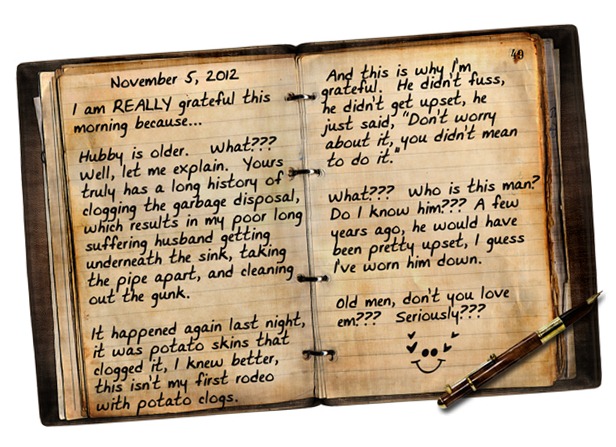 November 5, 2012
I am REALLY grateful this
morning because...
Hubby is older. What???
Well, let me explain. Yours
truly has a long history of
clogging the garbage disposal,
which results in my poor long
suffering husband getting
underneath the sink, taking
the pipe apart, and cleaning
out the gunk.
It happened again last night,
it was potato skins that
clogged it, I knew better,
this isn't my first rodeo
with potato clogs.
40
And this is why I'm
grateful. He didn't fuss,
he didn't get upset, he
just said, "Don't worry
about it, you didn't mean
to do it."
What??? Who is this man?
Do I know him??? A few
years ago, he would have
been pretty upset, I guess
I've worn him down.
Old men, don't you love
em??? Seriously???